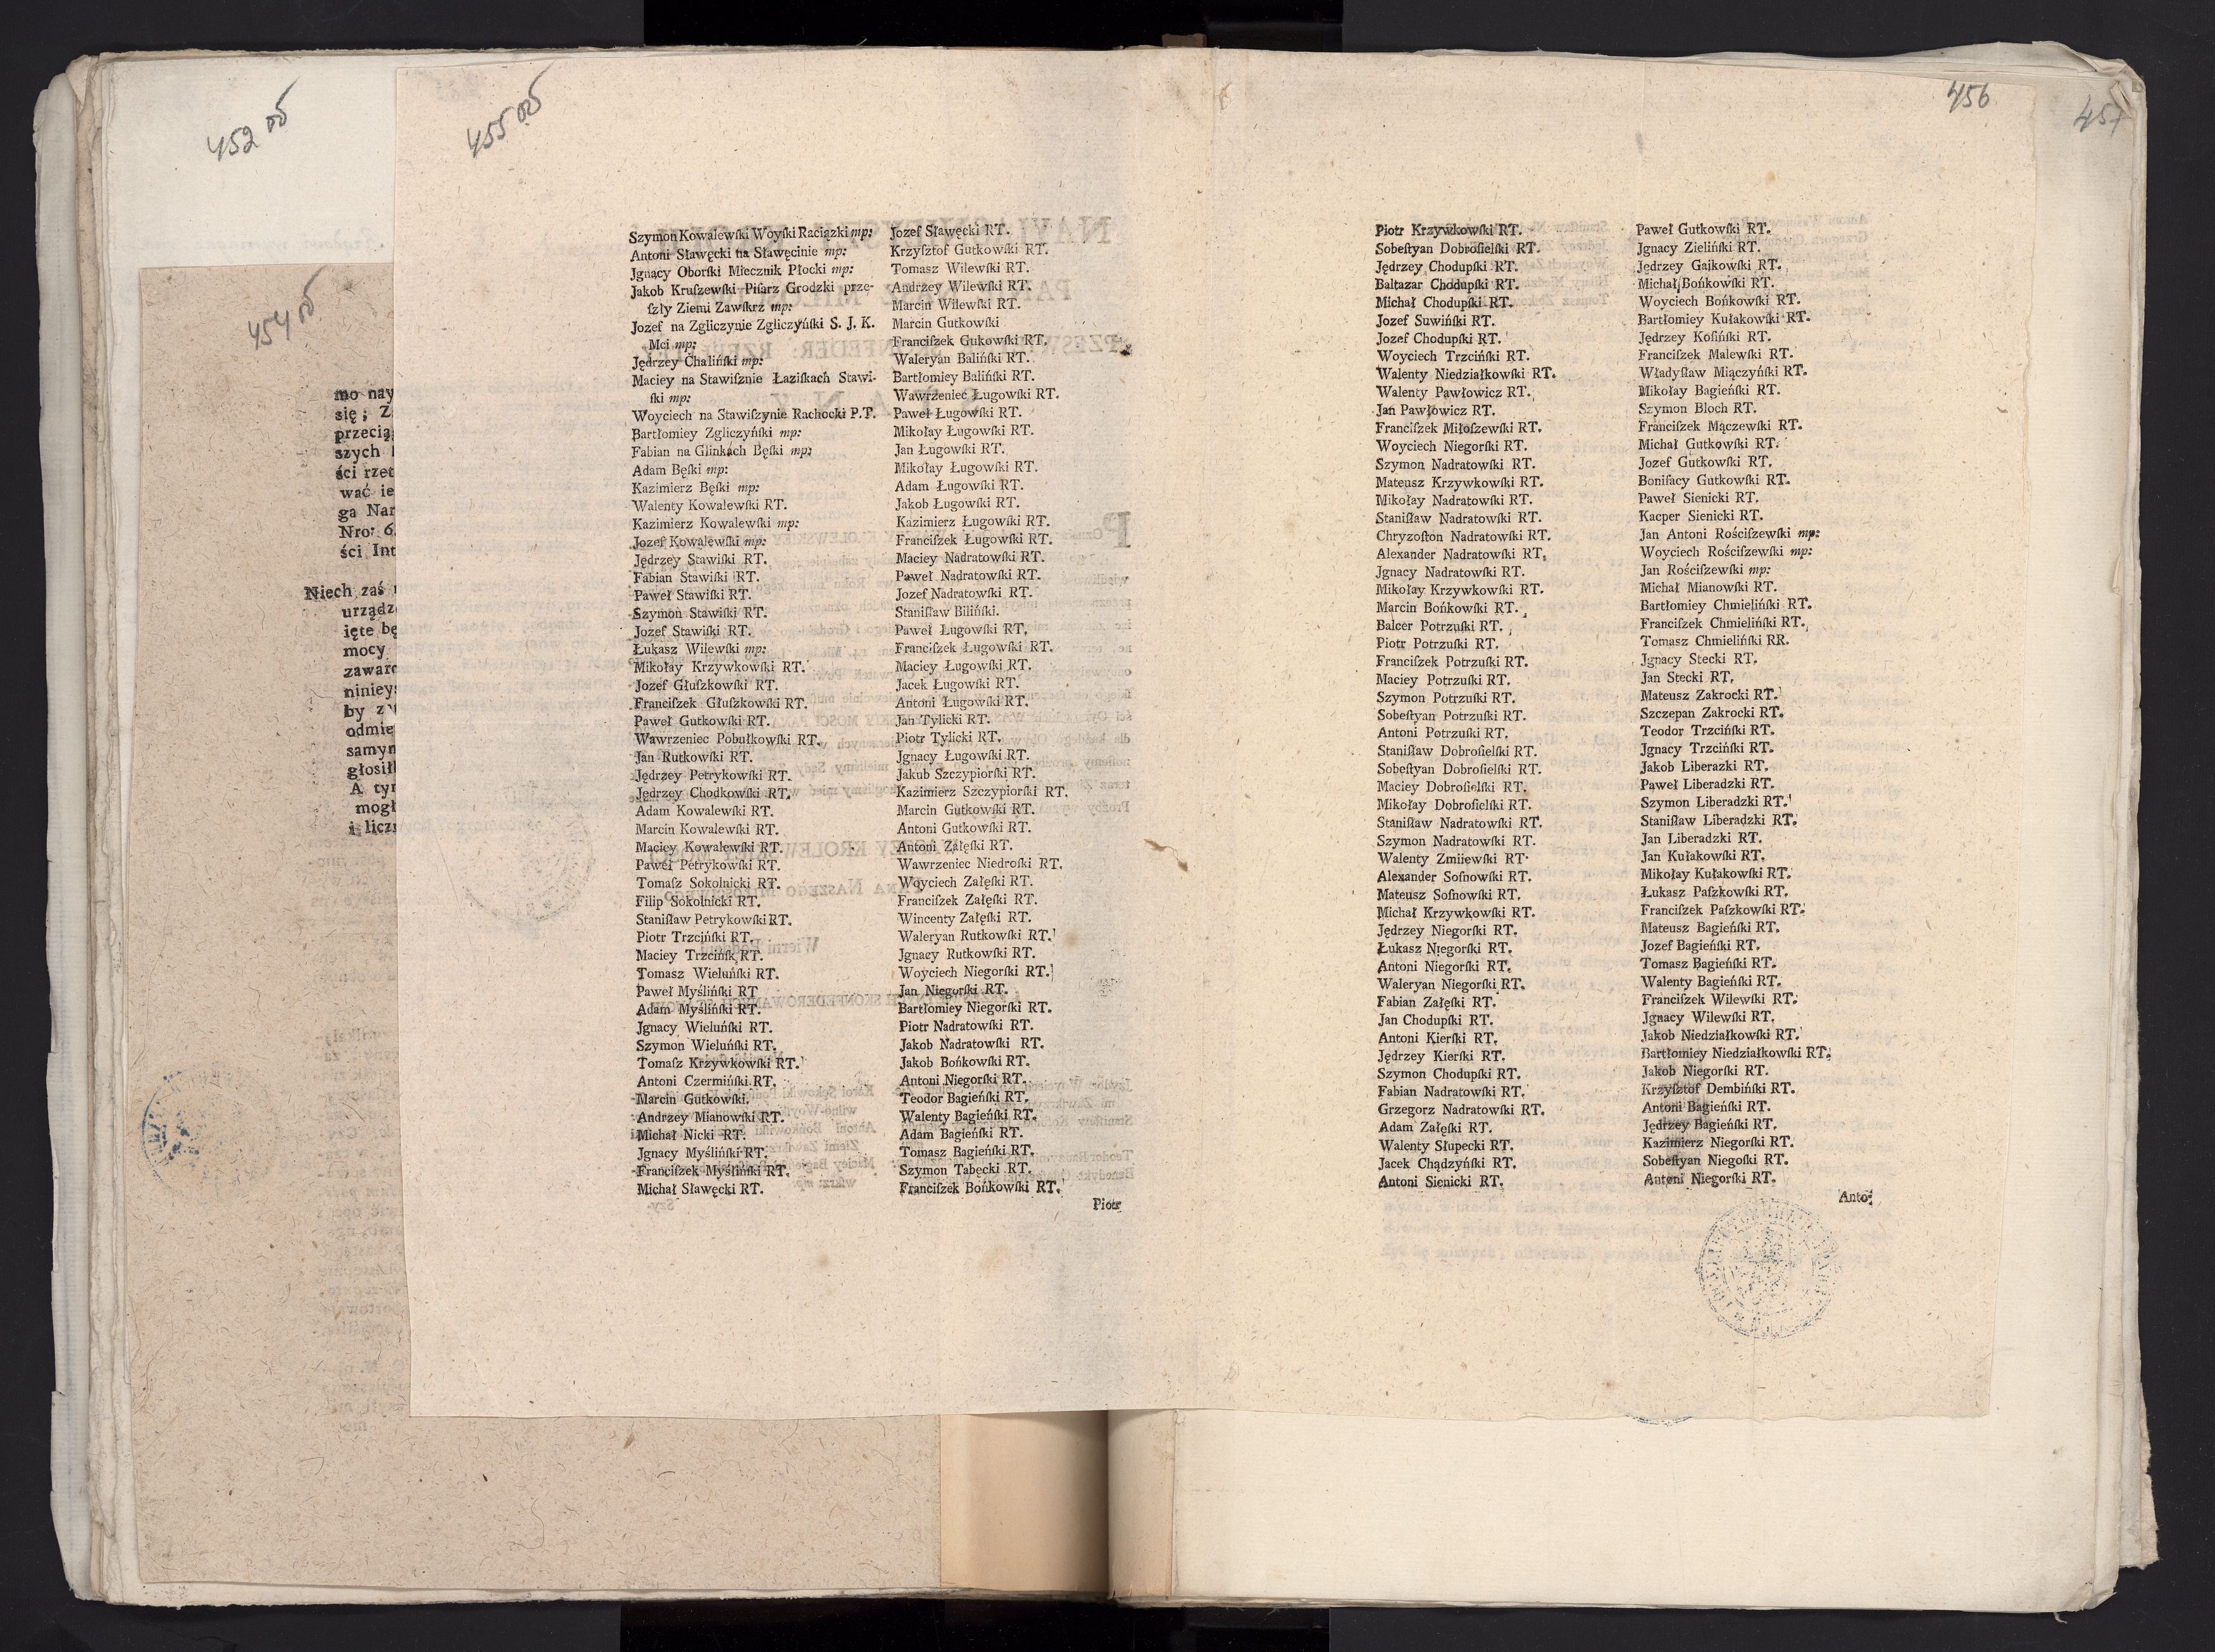 452 об
454 об
mo nay
się; Z
przecią
szych
ści rzet
wać ie
ga Nar
Nro: 6
ści Int
Niech zaś
urządz
ięte bę
mocy
zawarc
ninieys
by
odmie
samym
głosił
A tym
mogł
i licz
455 об
Szymon Kowalewſki Woyſki Raciązki mp:
Antoni Sławęcki na Sławęcinie mp:
Jgnacy Oborſki Miecznik Płocki mp:
Jakob Kruſzewſki Piſarz Grodzki prze-
ſzły Ziemi Zawſkrz mp:
Jozef na Zgliczynie Zgliczyńſki S. J. K.
Mci mp:
Jędrzey Chalińſki mp:
Maciey na Stawiſznie Łaziſkach Stawi-
ſki mp:
Woyciech na Stawiſzynie Rachocki P.T.
Bartłomiey Zgliczyńſki mp:
Fabian na Glinkach Bęſki mp:
Adam Bęſki mp:
Kazimierz Bęſki mp:
Walenty Kowalewſki RT.
Kazimierz Kowalewſki mp:
Jozef Kowalewſki mp:
Jędrzey Stawiſki RT.
Fabian Stawiſki RT.
Paweł Stawiſki RT.
Szymon Stawiſki RT.
Jozef Stawiſki RT.
Łukasz Wilewſki mp:
Mikołay Krzywkowſki RT.
Jozef Głuſzkowſki RT.
Franciſzek Głuſzkowſki RT.
Paweł Gutkowſki RT.
Wawrzeniec Pobułkowſki RT.
Jan Rutkowſki RT.
Jędrzey Petrykowſki RT.
Jędrzey Chodkowſki RT.
Adam Kowalewſki RT.
Marcin Kowalewſki RT.
Maciey Kowalewſki RT.
Paweł Petrykowſki RT.
Tomaſz Sokolnicki RT.
Filip Sokolnicki RT.
Staniſław Petrykowſki RT.
Piotr Trzcińſki RT.
Maciey Trzcińſk RT.
Tomasz Wieluńſki RT.
Paweł Myślińſki RT
Adam Myślińſki RT.
Jgnacy Wieluńſki RT.
Szymon Wieluńſki RT.
Tomaſz Krzywkowſki RT.
Antoni Czermińſki RT.
Marcin Gutkowſki.
Andrzey Mianowſki RT.
Michał Nicki RT.
Jgnacy Myślińſki RT.
Franciſzek Myślińſki RT.
Michał Sławęcki RT.
Jozef Sławęcki RT.
Krzyſztof Gutkowſki RT.
Tomasz Wilewſki RT.
Andrzey Wilewſki RT.
Marcin Wilewſki RT.
Marcin Gutkowſki
Franciſzek Gukowſki RT.
Waleryan Balińſki RT.
Bartłomiey Balińſki RT.
Wawrzeniec Ługowſki RT.
Paweł Ługowſki RT.
Mikołay Ługowſki RT.
Jan Ługowſki RT.
Mikołay Ługowſki RT.
Adam Ługowſki RT.
Jakob Ługowſki RT.
Kazimierz Ługowſki RT.
Franciſzek Ługowſki RT.
Maciey Nadratowſki RT.
Paweł Nadratowſki RT.
Jozef Nadratowſki RT.
Staniſław Bilińſki.
Paweł Ługowſki RT.
Franciſzek Ługowſki RT.
Maciey Ługowſki RT.
Jacek Ługowſki RT.
Antoni Ługowſki RT.
Jan Tylicki RT.
Piotr Tylicki RT.
Jgnacy Ługowſki RT.
Jakub Szczypiorſki RT.
Kazimierz Szczypiorſki RT.
Marcin Gutkowſki RT.
Antoni Gutkowſki RT.
Antoni Załęſki RT.
Wawrzeniec Niedroſki RT.
Woyciech Załęſki RT.
Franciſzek Załęſki RT.
Wincenty Załęſki RT.
Waleryan Rutkowſki RT.
Jgnacy Rutkowſki RT.
Woyciech Niegorſki RT.
Jan Niegorſki RT.
Bartłomiey Niegorſki RT.
Piotr Nadratowſki RT.
Jakob Nadratowſki RT.
Jakob Bońkowſki RT.
Antoni Niegorſki RT.
Teodor Bagieńſki RT.
Walenty Bagieńſki RT.
Adam Bagieńſki RT.
Tomasz Bagieńſki RT.
Szymon Tabęcki RT.
Franciſzek Bońkowſki RT.
Piotr
456
457
Piotr Krzywkowſki RT.
Sobeſtyan Dobroſielſki RT.
Jędrzey Chodupſki RT.
Baltazar Chodupſki RT.
Michał Chodupſki RT.
Jozef Suwińſki RT.
Jozef Chodupſki RT.
Woyciech Trzcińſki RT.
Walenty Niedziałkowſki RT.
Walenty Pawłowicz RT.
Jan Pawłowicz RT.
Franciſzek Miłoſzewſki RT.
Woyciech Niegorſki RT.
Szymon Nadratowſki RT.
Mateusz Krzywkowſki RT.
Mikołay Nadratowſki RT.
Staniſław Nadratowſki RT.
Chryzoſton Nadratowſki RT.
Alexander Nadratowſki RT.
Jgnacy Nadratowſki RT.
Mikołay Krzywkowſki RT.
Marcin Bońkowſki RT.
Balcer Potrzuſki RT.
Piotr Potrzuſki RT.
Franciſzek Potrzuſki RT.
Maciey Potrzuſki RT.
Szymon Potrzuſki RT.
Sobeſtyan Potrzuſki RT.
Antoni Potrzuſki RT.
Staniſław Dobroſielſki RT.
Sobeſtyan Dobroſielſki RT.
Maciey Dobroſielſki RT.
Mikołay Dobroſielſki RT.
Staniſław Nadratowſki RT.
Szymon Nadratowſki RT.
Walenty Zmiiewſki RT.
Alexander Soſnowſki RT.
Mateusz Soſnowſki RT.
Michał Krzywkowſki RT.
Jędrzey Niegorſki RT.
Łukasz Niegorſki RT.
Antoni Niegorſki RT.
Waleryan Niegorſki RT.
Fabian Załęſki RT.
Jan Chodupſki RT.
Antoni Kierſki RT.
Jędrzey Kierſki RT.
Szymon Chodupſki RT.
Fabian Nadratowſki RT.
Grzegorz Nadratowſki RT.
Adam Załęſki RT.
Walenty Słupecki RT.
Jacek Chądzyńſki RT.
Antoni Sienicki RT.
Paweł Gutkowſki RT.
Jgnacy Zielińſki RT.
Jędrzey Gaikowſki RT.
Michał Bońkowſki RT.
Woyciech Bońkowſki RT.
Bartłomiey Kułakowſki RT.
Jędrzey Koſińſki RT.
Franciſzek Malewſki RT.
Władyſław Miączyńſki RT.
Mikołay Bagieńſki RT.
Szymon Bloch RT.
Franciſzek Mączewſki RT.
Michał Gutkowſki RT.
Jozef Gutkowſki RT.
Bonifacy Gutkowſki RT.
Paweł Sienicki RT.
Kacper Sienicki RT.
Jan Antoni Rościſzewſki mp:
Woyciech Rościſzewſki mp:
Jan Rościſzewſki mp:
Michał Mianowſki RT.
Bartłomiey Chmielińſki RT.
Franciſzek Chmielińſki RT.
Tomasz Chmielińſki RR.
Jgnacy Stecki RT.
Jan Stecki RT.
Mateusz Zakrocki RT.
Szczepan Zakrocki RT.
Teodor Trzcińſki RT.
Jgnacy Trzcińſki RT.
Jakob Liberazki RT.
Paweł Liberadzki RT.
Szymon Liberadzki RT.
Staniſław Liberadzki RT.
Jan Liberadzki RT.
Jan Kułakowſki RT.
Mikołay Kułakowſki RT.
Łukasz Paſzkowſki RT.
Franciſzek Paſzkowſki RT.
Mateusz Bagieńſki RT.
Jozef Bagieńſki RT.
Tomasz Bagieńſki RT.
Walenty Bagieńſki RT.
Franciſzek Wilewſki RT.
Jgnacy Wilewſki RT.
Jakob Niedziałkowſki RT.
Bartłomiey Niedziałkowſki RT.
Jakob Niegorſki RT.
Krzyſztof Dembińſki RT.
Antoni Bagieńſki RT.
Jędrzey Bagieńſki RT.
Kazimierz Niegorſki RT.
Sobeſtyan Niegoſki RT.
Antoni Niegorſki RT.
Anto: